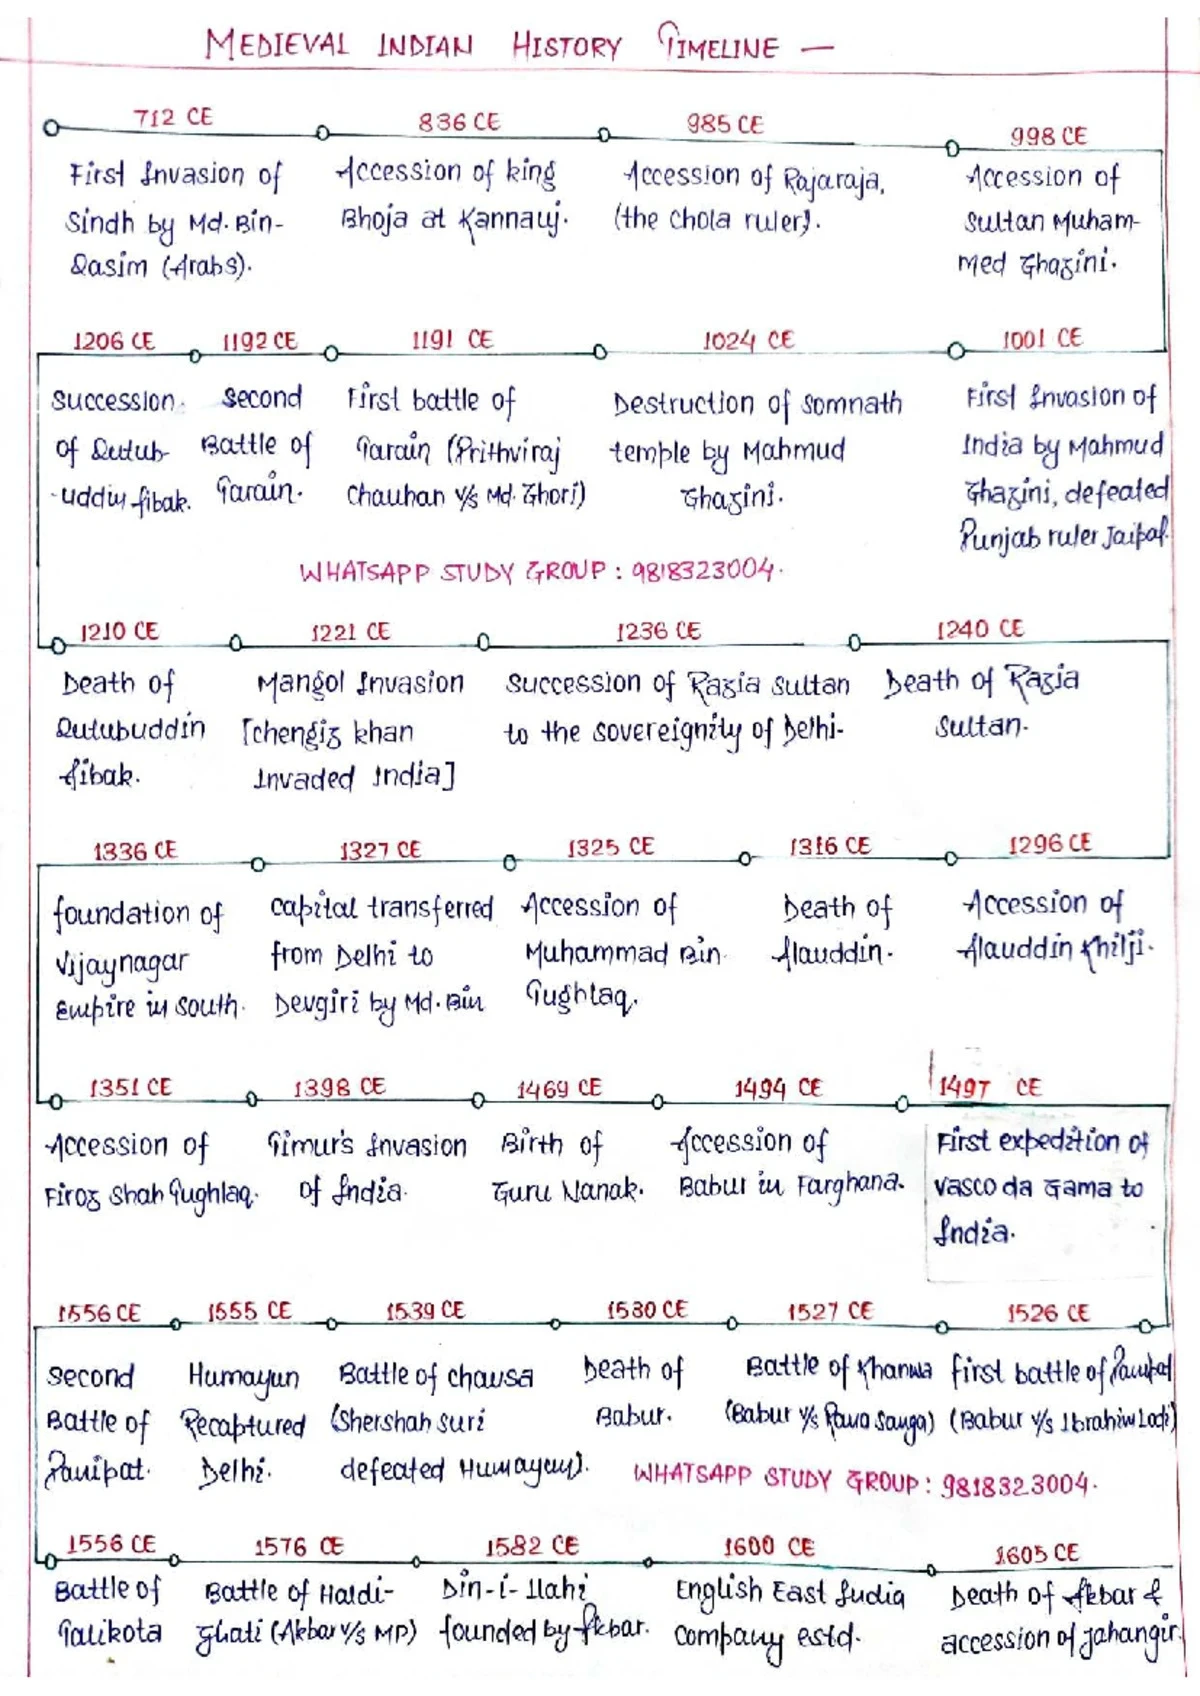 MEDIEVAL INDIAN HISTORY TIMELINE —
712 CE
First Invasion of
Sindh by Md. Bin-
Qasim (Arabs).
836 CE
Accession of king
Bhoja at Kannauj.
985 CE
Accession of Rajaraja,
(the Chola ruler).
998 CE
Accession of
Sultan Muham-
med Ghazini.
1206 CE
Succession
of Qutub-
-uddin Aibak.
1192 CE
Second
Battle of
Tarain.
1191 CE
First battle of
Tarain (Prithviraj
Chauhan v/s Md. Ghori)
1024 CE
Destruction of Somnath
temple by Mahmud
Ghazini.
1001 CE
First Invasion of
India by Mahmud
Ghazini, defeated
Punjab ruler Jaipal.
WHATSAPP STUDY GROUP : 9818323004.
1210 CE
Death of
Qutubuddin
Aibak.
1221 CE
Mangol Invasion
[Chengiz khan
Invaded India]
1236 CE
Succession of Razia Sultan
to the sovereignity of Delhi.
1240 CE
Death of Razia
Sultan.
1336 CE
foundation of
Vijaynagar
Empire in south.
1327 CE
Capital transferred
from Delhi to
Devgiri by Md. Bin
1325 CE
Accession of
Muhammad Bin
Tughlaq.
1316 CE
Death of
Alauddin.
1296 CE
Accession of
Alauddin Khilji.
1351 CE
Accession of
Firoz Shah Tughlaq.
1398 CE
Timur's Invasion
of India.
1469 CE
Birth of
Guru Nanak.
1494 CE
Accession of
Babur in Farghana.
1497 CE
First expedition of
Vasco da Gama to
India.
1556 CE
Second
Battle of
Panipat.
1555 CE
Humayun
Recaptured
Delhi.
1539 CE
Battle of chausa
(Shershah Suri
defeated Humayun).
1530 CE
Death of
Babur.
1527 CE
Battle of Khanwa
(Babur v/s Rana Sanga)
1526 CE
First battle of Panipat
(Babur v/s Ibrahim Lodi)
WHATSAPP STUDY GROUP : 9818323004.
1556 CE
Battle of
Talikota
1576 CE
Battle of Haldi-
ghati (Akbar v/s MP)
1582 CE
Din-i-Ilahi
founded by Akbar.
1600 CE
English East India
Company estd.
1605 CE
Death of Akbar &
accession of Jahangir.